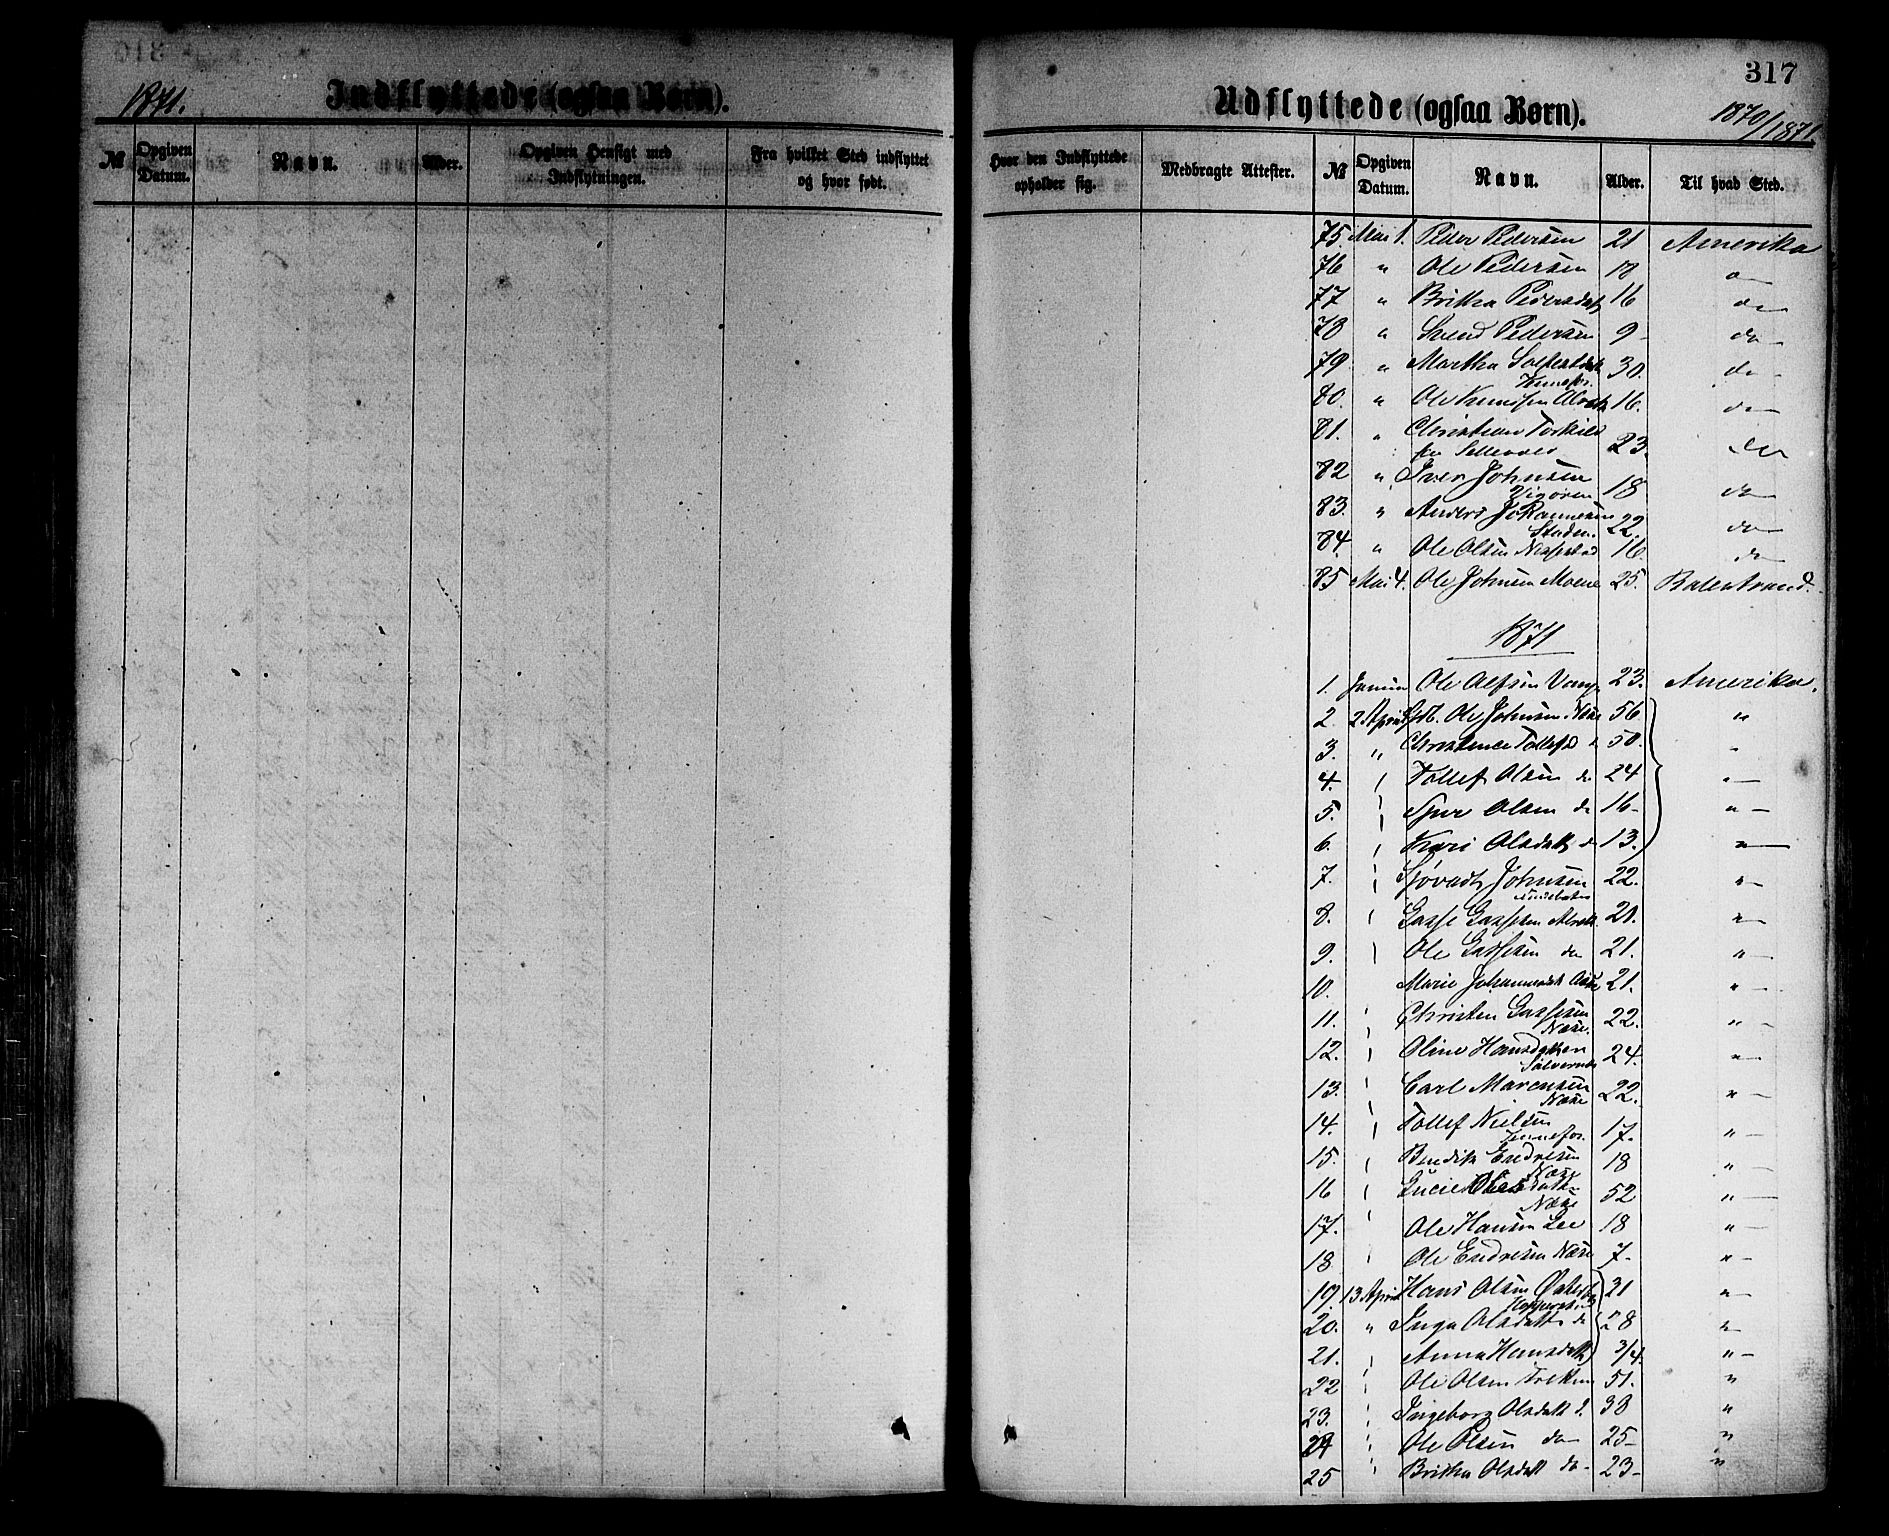 1871.
Indflyttede (ogsaa Børn).
№
Opgiven Datum.
Navn.
Alder.
Opgiven Hensigt med Indflytningen.
Fra hvilket Sted indflyttet og hvor født.
317
Udflyttede (ogsaa Børn).
1870/1871
Hvor den Indflyttede opholder sig.
Medbragte Attester.
№
Opgiven Datum.
Navn.
Alder.
Til hvad Sted.
75 Mai 1. Peder Pedersen 21 Amerika
76 " Ole Pedersen 18
77 " Britha Pedersdatt 16 do
78 " Svend Pedersen 9 do
79 " Martha 30. do
80. " Ole Knudsen 16. do
81. " Christian Torkild 23 do
82 " Iver Johnsen 18 do
83. " Anders Johannesen 22. do
84. " Ole Olsen 16 do
85 Mai 4. Ole Johnsen Moene 25. Balestrand.
1871
1. Januar Ole Alfsen Vang 23. Amerika.
2 2 April Ole Johnsen Næse 56 "
3. " Christence Tollefsd 50. "
4. Tollef Olsen do 24 "
5. Olsen do 16 "
6. Kari Olsdatt 13. "
7. Johnsen 22. "
8. Gasse Gassesen 21. "
9. Ole Gassesen do 21. "
10. Marie Johannesdt 21. "
11. Christen Gassesen
Næse. 22. "
12. Oline Hansdatter 24. "
13. Carl
Næse 22. "
14. Tollef Nielsen 17. "
15. Bendik Endresen
Næse 18 "
16 Lucie
Næse 52 "
17. Ole Hansen Lee 18 "
18 Ole Endresen Næse 7 "
19. 13 April Hans Olsen
Hopperstad 31 "
20. " Inga Olsdatt do 28 "
21. Anna Hansdatt 3/4. "
22 Ole Olsen 51. "
23. Ingeborg Olsdatt d. 38 "
24 Ole Olsen do 25 "
25 Britha Olsdatt do 23 "